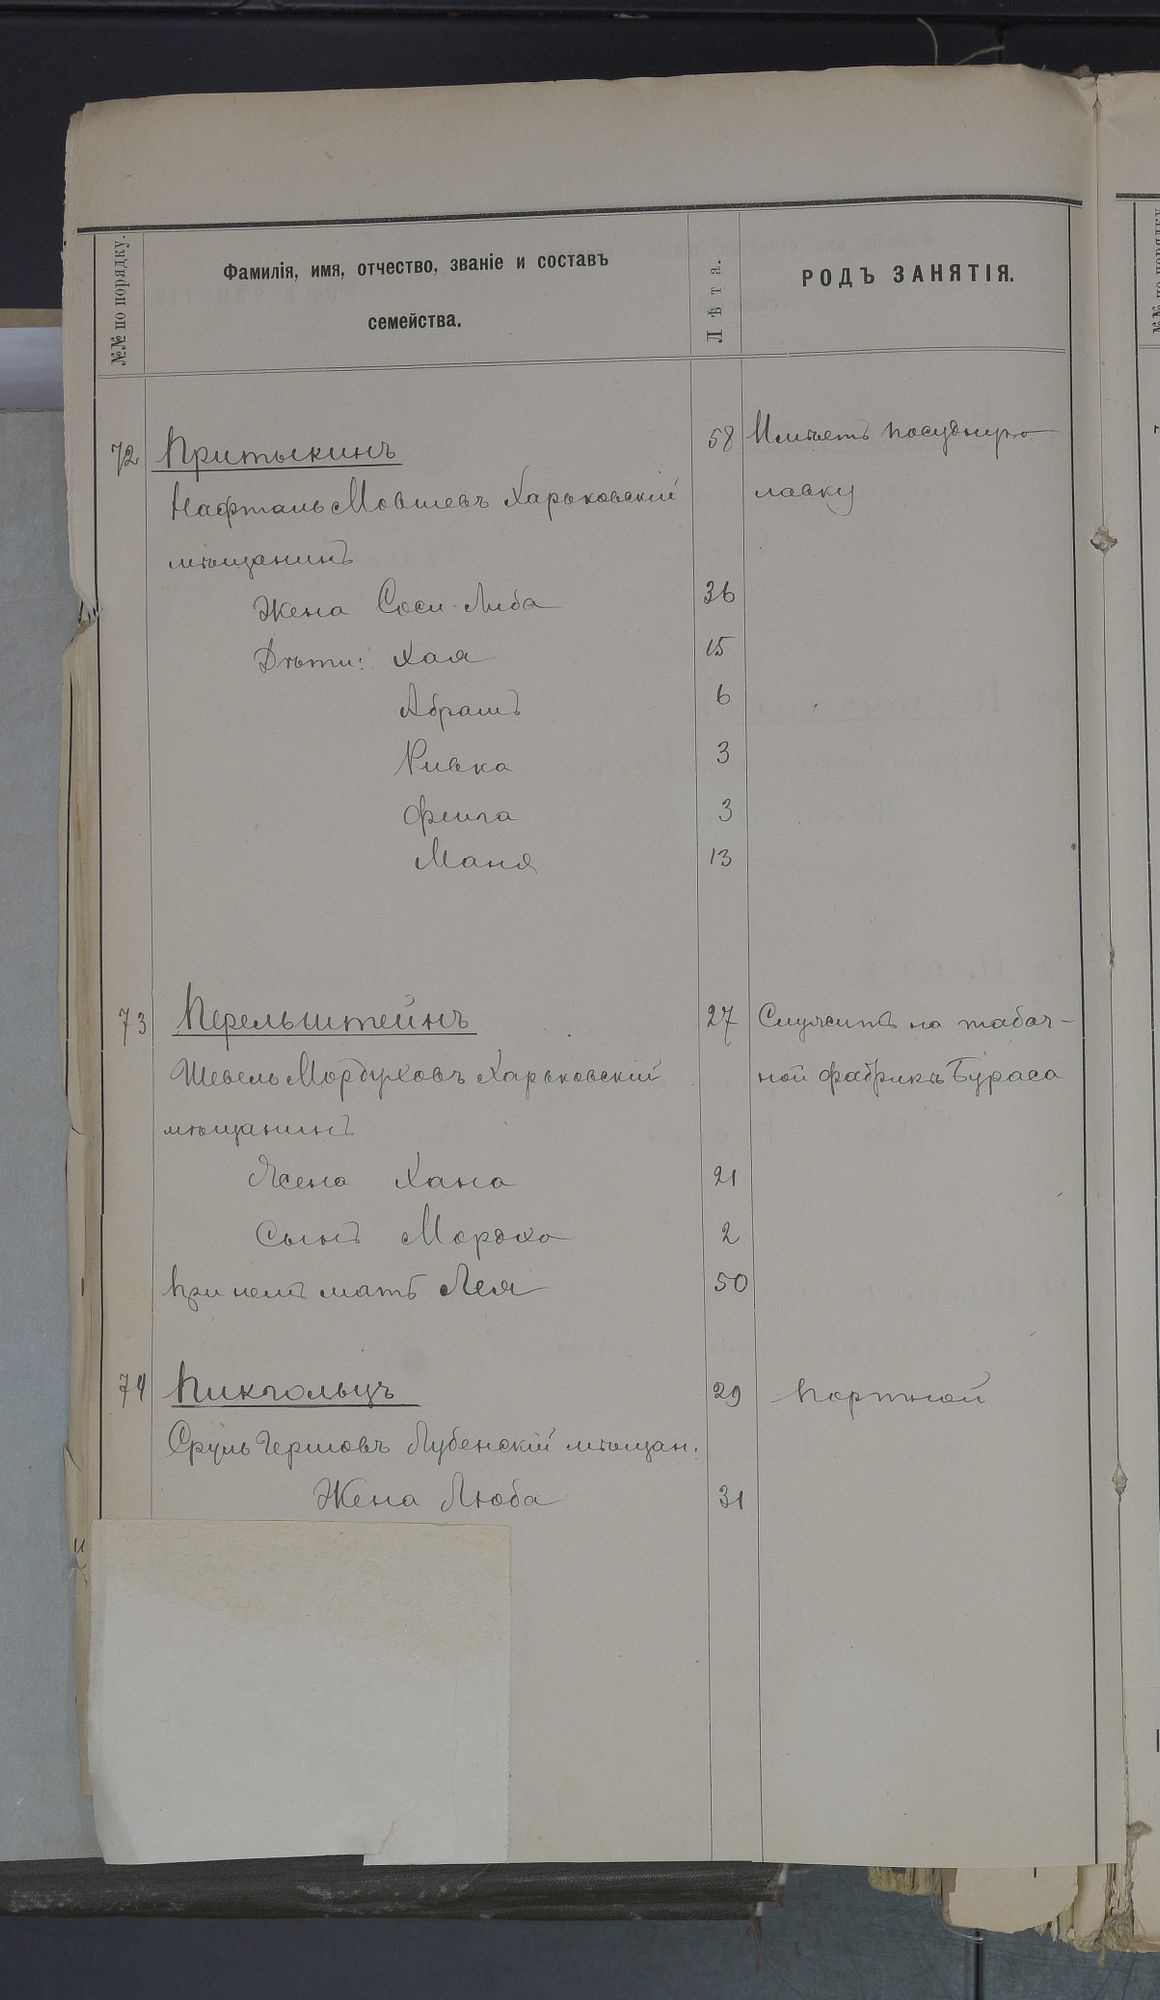 №№ по порядку.
Фамилія, имя, отчество, званіе и составъ
семейства.
Лѣта.
РОДЪ ЗАНЯТІЯ.
72 Притыкинъ 58 Имѣетъ посудную
Нафталь Мовшевъ Харьковскій лавку
мѣщанинъ
Жена Соси-Либа 36
Дѣти: Хая 15
Абрамъ 6
Ривка 3
Фейга 3
Маня 13
73 Перельштейнъ 27 Служитъ на табач-
Шевель Мордуховъ Харьковскій ной фабрикѣ Бураса
мѣщанинъ
Жена Хана 21
Сынъ Мордхо 2
При немъ мать Лея 50
74 Пикгольцъ 29 Портной
Сруль Гершовъ Лубенскій мѣщан.
Жена Люба 31